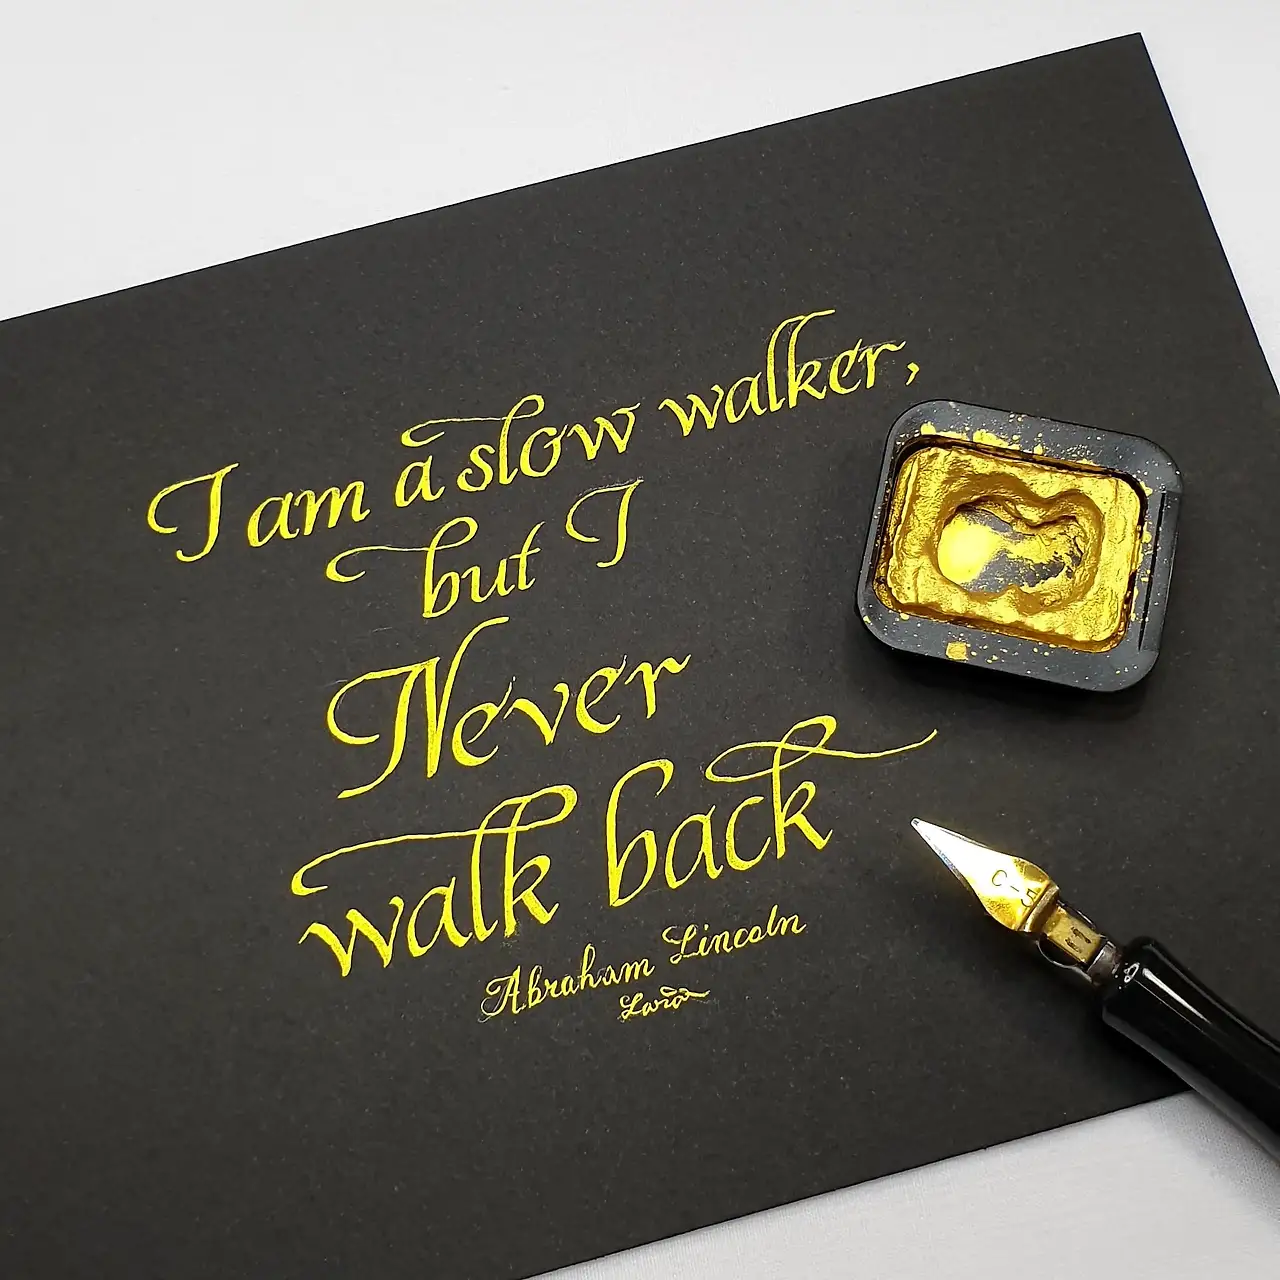 I am a slow walker,
but I
Never
walk back
Abraham Lincoln
Lara
C-5